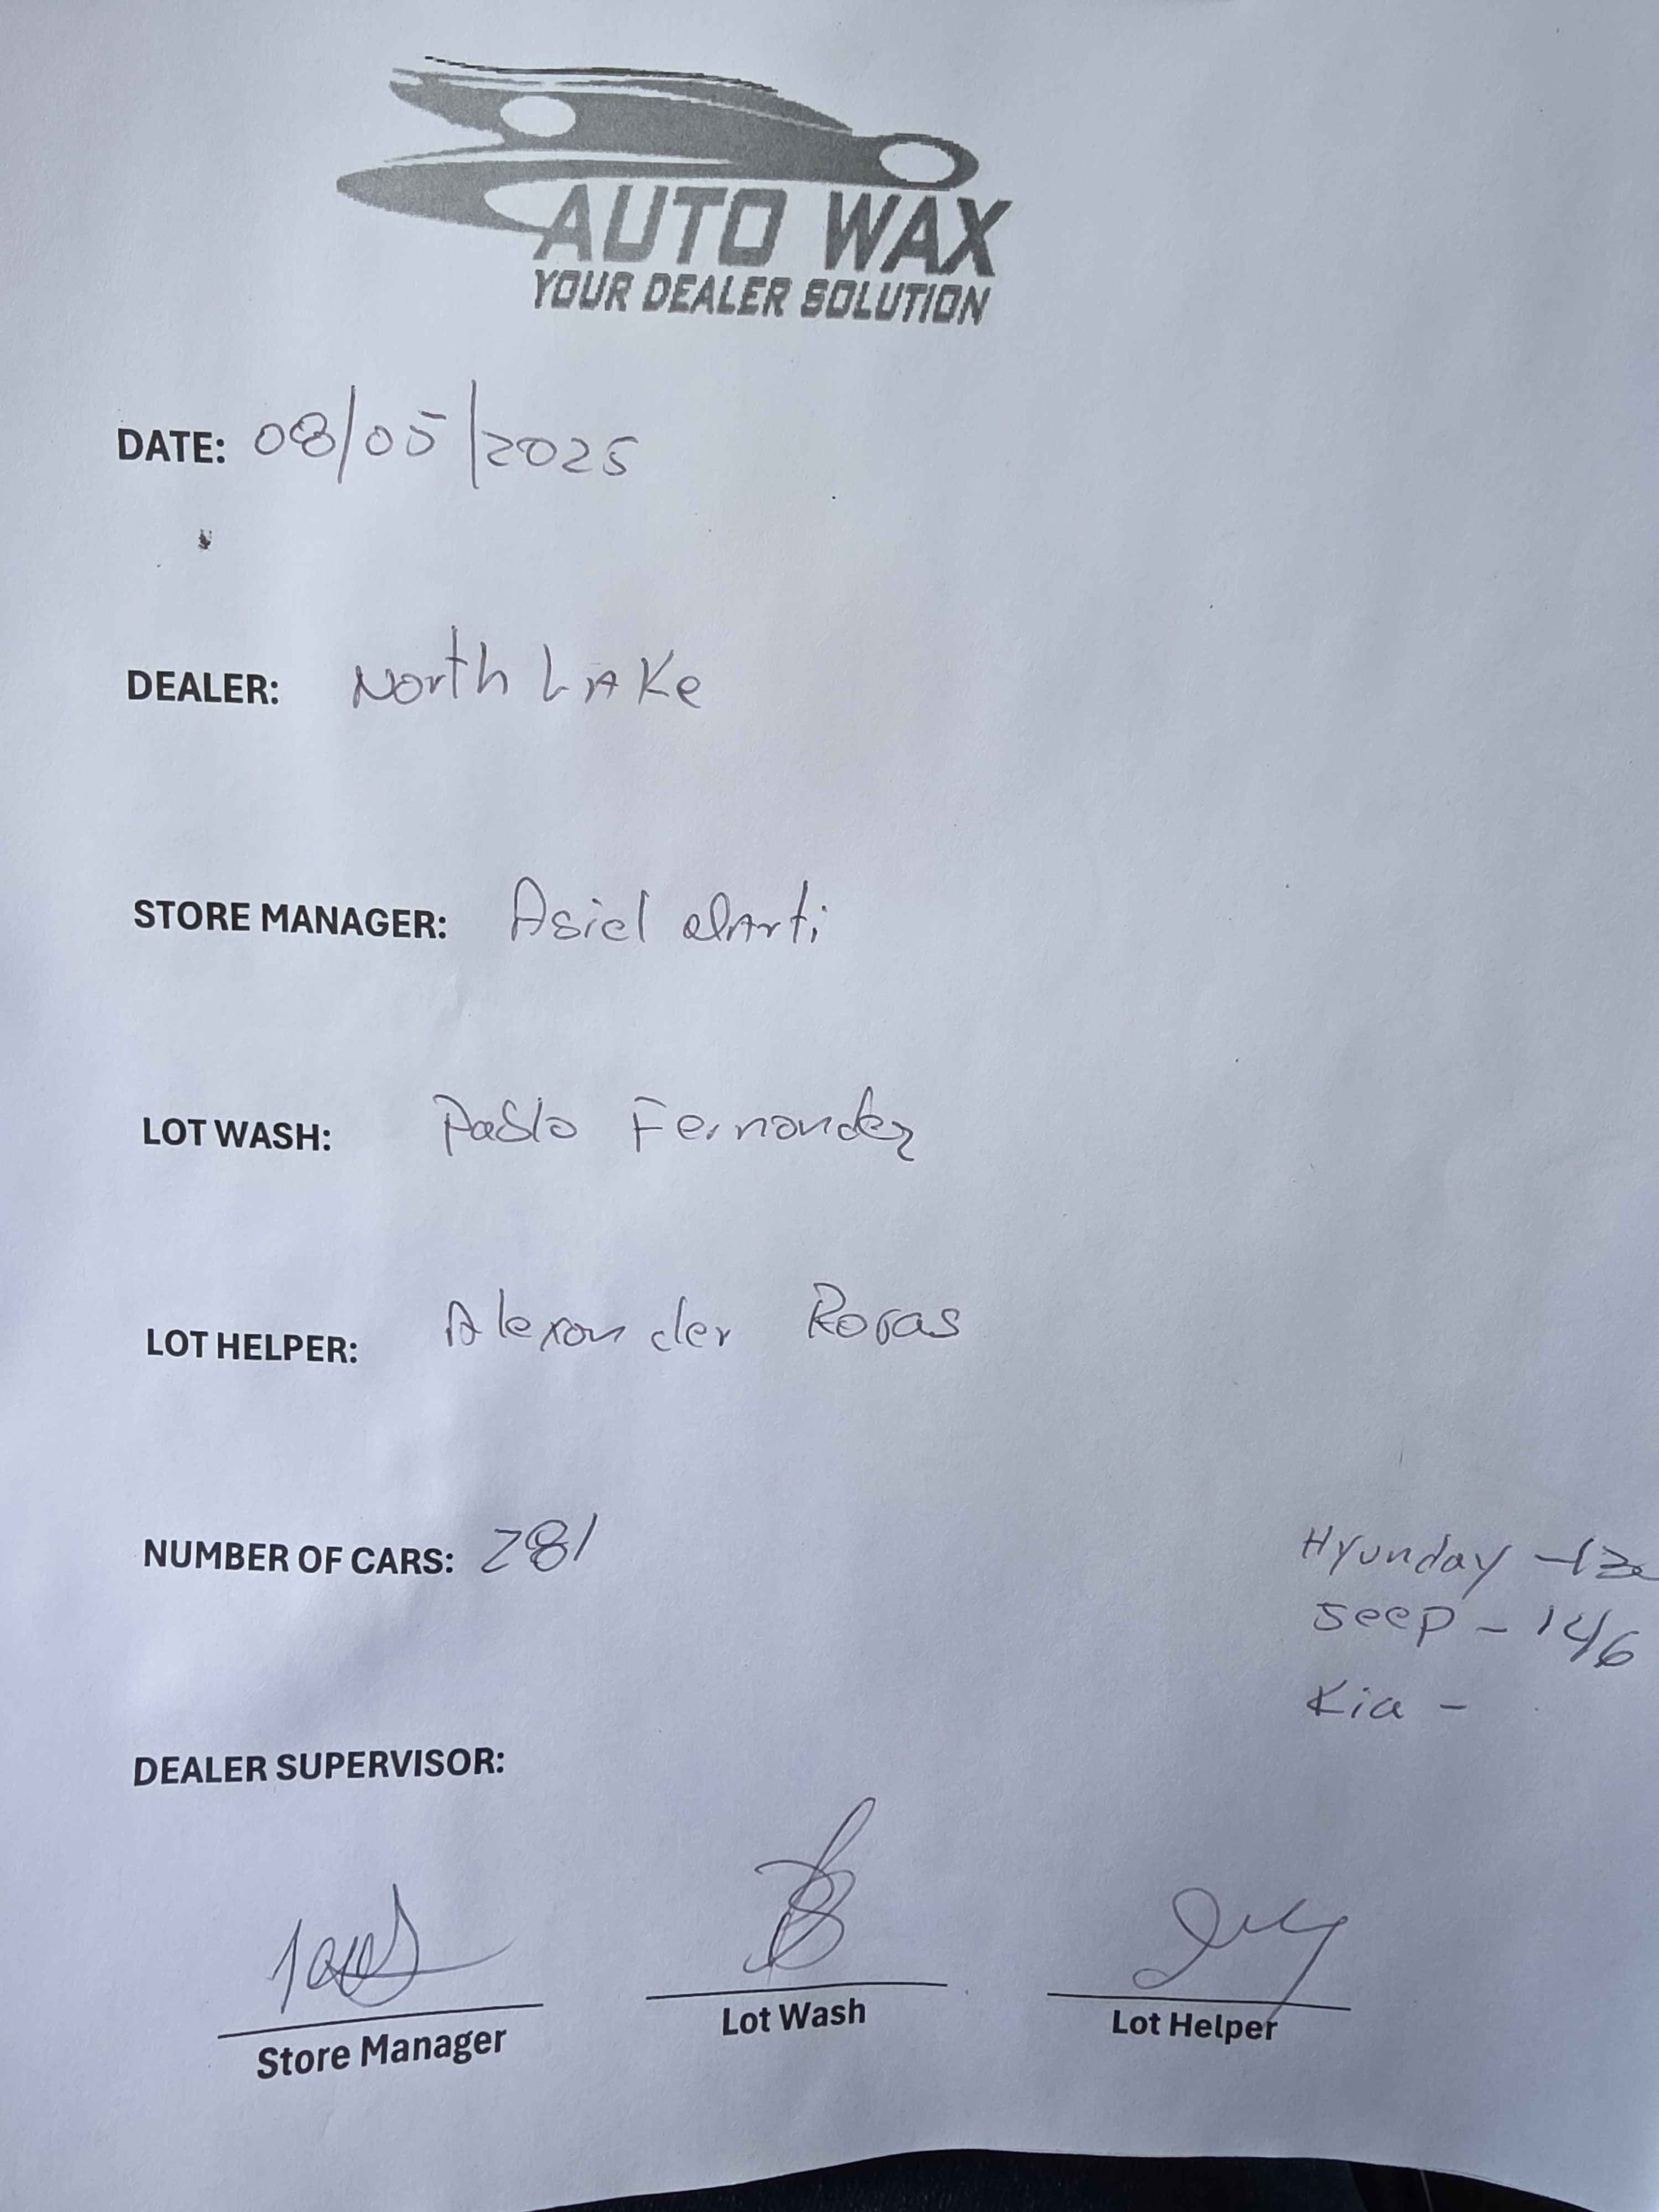 AUTO WAX
YOUR DEALER SOLUTION
DATE: 08/05/2025
DEALER: North LAKe
STORE MANAGER: Asiel
LOT WASH: Pablo Fernandez
LOT HELPER: Alexander Rojas
NUMBER OF CARS: 281
Hyunday -
Jeep - 146
Kia -
DEALER SUPERVISOR:
Store Manager
Lot Wash
Lot Helper